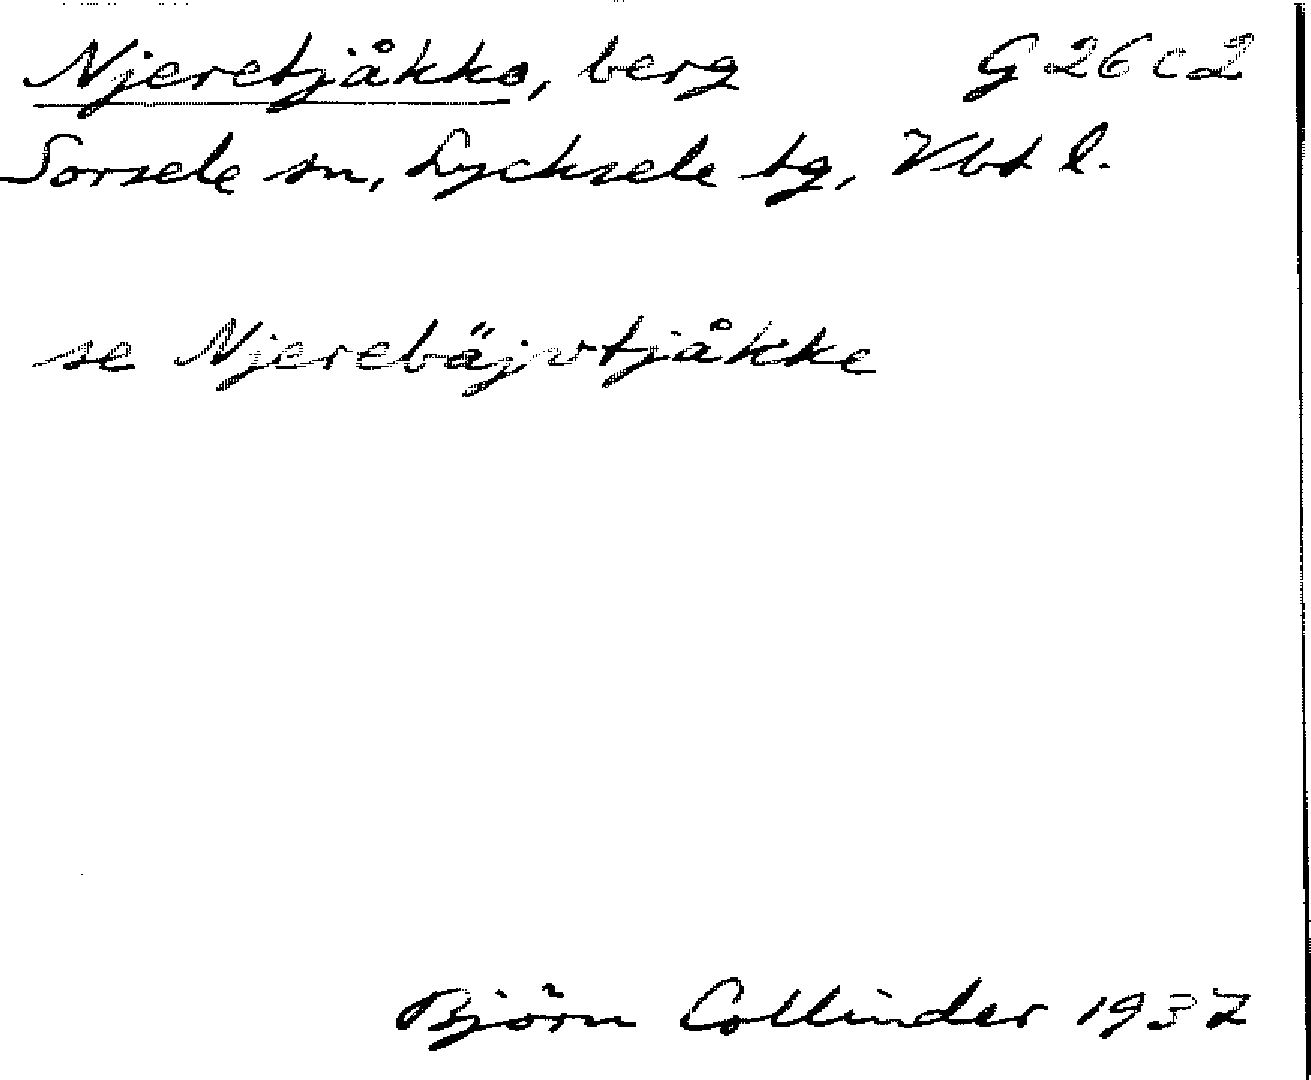 Njeretjåkko, berg G 26 c 2
Sorsele sn, Lycksele tg, Vbt l.
se Njerebäjvtjåkke
Björn Collinder 1937